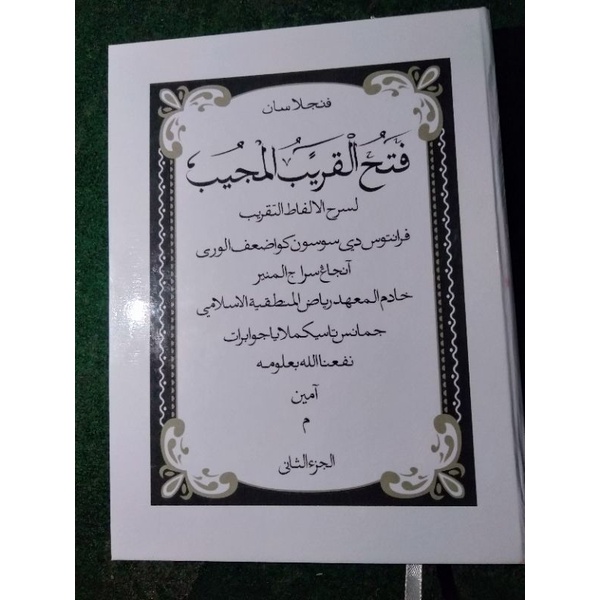 فنجلاسان
فَتْحُ الْقَرِيْبُ الْمُجِيْبُ
لسرح الالفاط التقريب
فرانتوس دي سوسون كو اضعف الورى
آنجاڠ سراج المنير
خادم المعهد رياض المنطقية الاسلامي
جمانس تاسيكملايا جوابرات
نفعنا الله بعلومه
آمين
م
الجزء الثانى